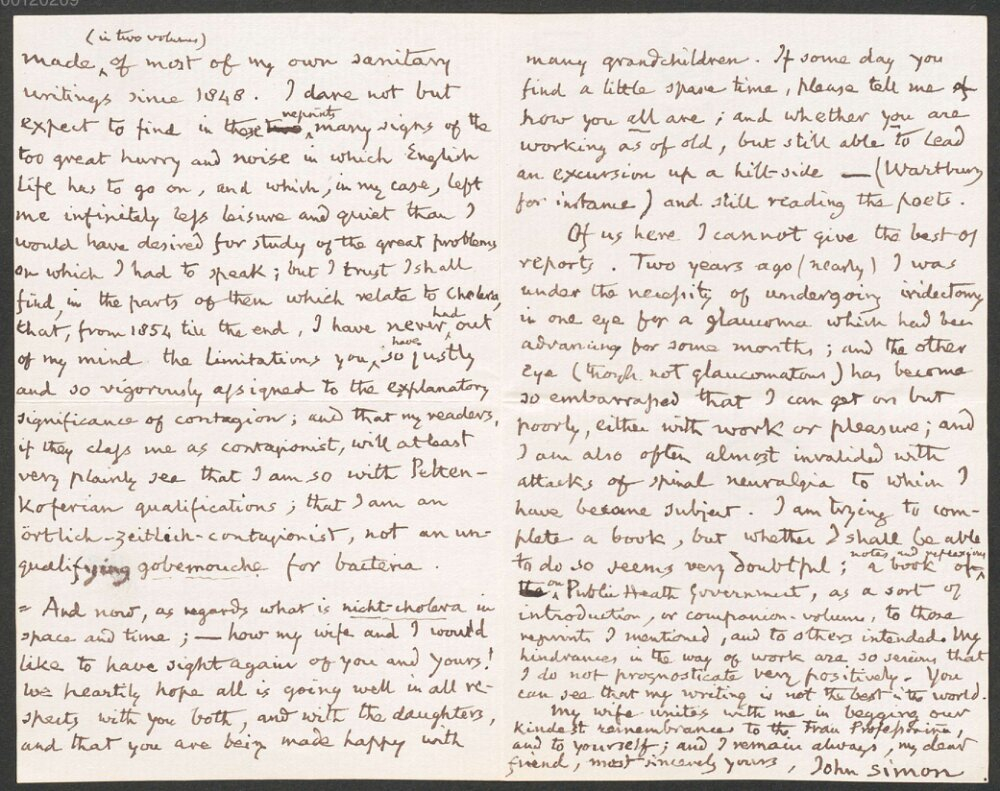 00120209
(in two volumes)
made ^ of most of my own sanitary
writings since 1848. I dare not but
expect to find in these reprints ^ many signs of the
too great hurry and noise in which English
life has to go on, and which, in my case, left
me infinitely less leisure and quiet than I
would have desired for study of the great problems
on which I had to speak; but I trust I shall
find, in the parts of them which relate to Cholera,
that, from 1854 till the end, I have never ^ had out
of my mind the limitations you ^ have so justly
and so vigorously assigned to the explanatory
significance of contagion; and that my readers,
if they class me as contagionist, will at least
very plainly see that I am so with Petten-
koferian qualifications; that I am an
örtlich-zeitlich-contagionist, not an un-
qualifying gobemouche for bacteria.
= And now, as regards what is nicht-cholera in
space and time; — how my wife and I would
like to have sight again of you and yours!
We heartily hope all is going well in all re-
spects with you both, and with the daughters,
and that you are being made happy with
many grandchildren. If some day you
find a little spare time, please tell me
how you all are; and whether you are
working as of old, but still able to lead
an excursion up a hill-side — (Wartburg
for instance) and still reading the poets.
Of us here I cannot give the best of
reports. Two years ago (nearly) I was
under the necessity of undergoing iridectomy
in one eye for a glaucoma which had been
advancing for some months; and the other
eye (though not glaucomatous) has become
so embarrassed that I can get on but
poorly, either with work or pleasure; and
I am also often almost invalided with
attacks of spinal neuralgia to which I
have become subject. I am trying to com-
plete a book, but whether I shall be able
to do so seems very doubtful; a book of ^ notes and reflexions
^ on Public Heath Government, as a sort of
introduction, or companion-volume, to those
reprints I mentioned, and to others intended. My
hindrances in the way of work are so serious that
I do not prognosticate very positively. You
can see that my writing is not the best in the world.
My wife unites with me in begging our
kindest remembrances to the Frau Professorinn,
and to yourself; and I remain always, my dear
friend, most sincerely yours, John Simon